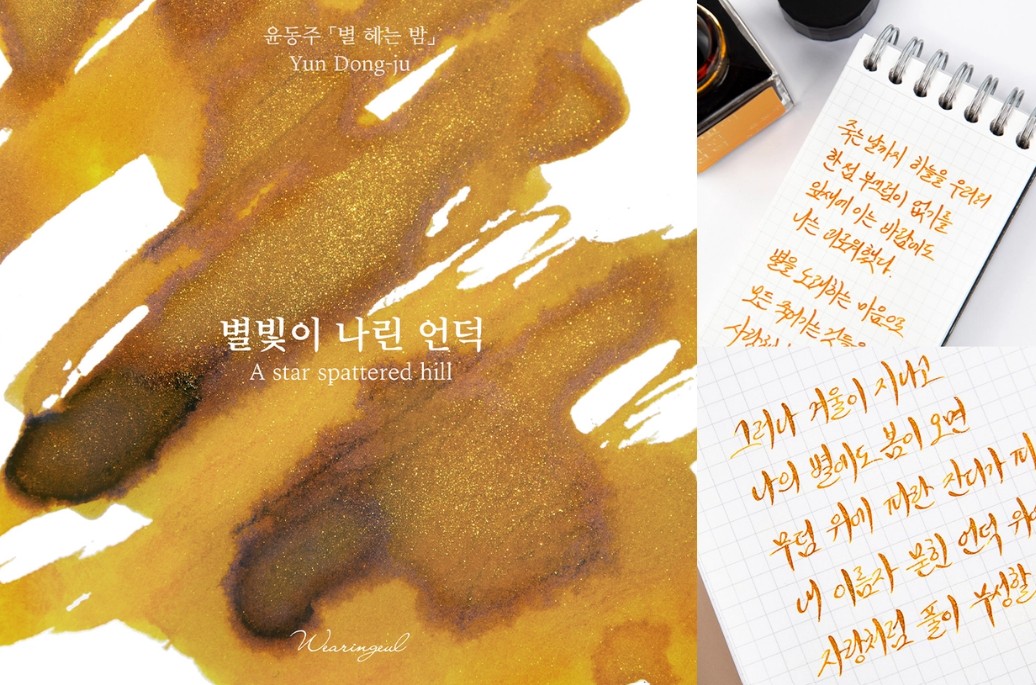 윤동주 「별 헤는 밤」
Yun Dong-ju
별빛이 나린 언덕
A star spattered hill
Wearingeul
죽는 날까지 하늘을 우러러
한 점 부끄럼이 없기를
잎새에 이는 바람에도
나는 괴로워했다.
별을 노래하는 마음으로
모든 죽어가는 것들을
사랑
그러나 겨울이 지나고
나의 별에도 봄이 오면
무덤 위에 파란 잔디가 피
내 이름자 묻힌 언덕 위에
사랑처럼 풀이 무성할